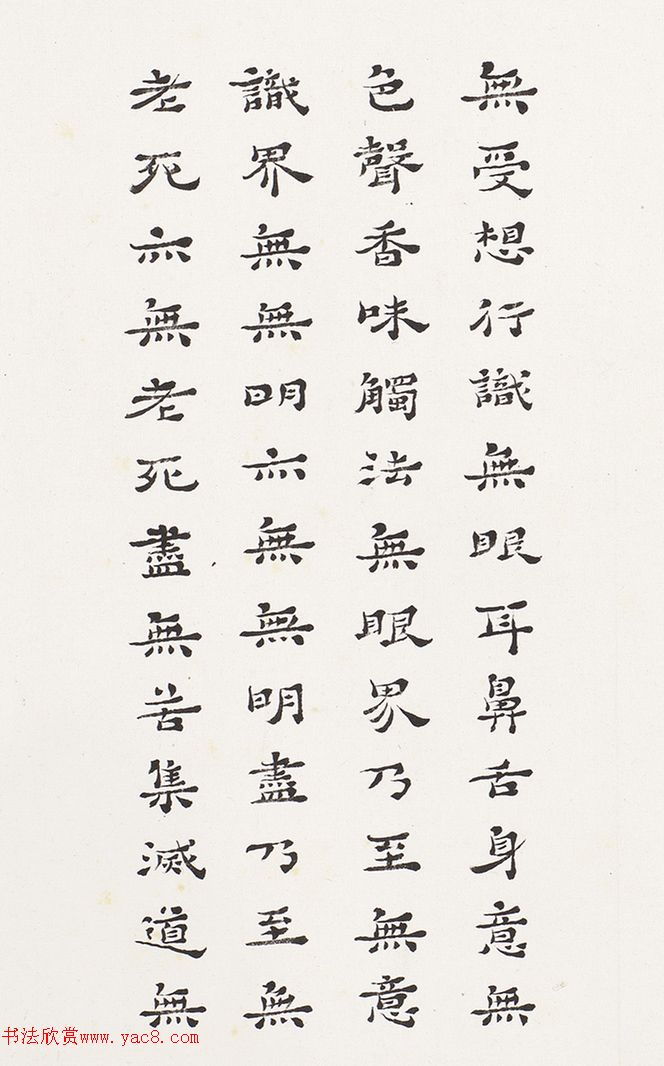 無受想行識無眼耳鼻舌身意無
色聲香味觸法無眼界乃至無意
識界無無明亦無無明盡乃至無
老死亦無老死盡無苦集滅道無
书法欣赏www.yac8.com